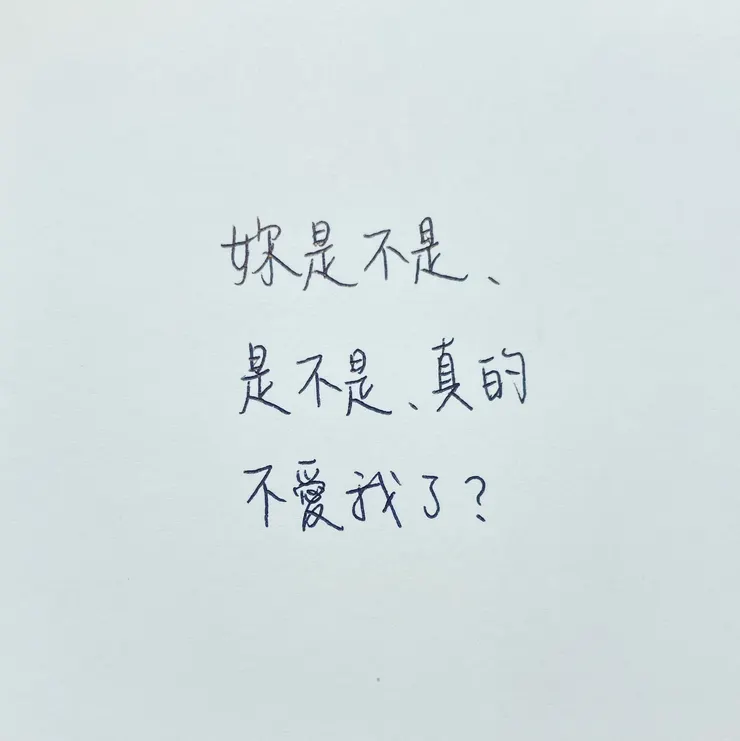 妳是不是、
是不是、真的
不愛我了？